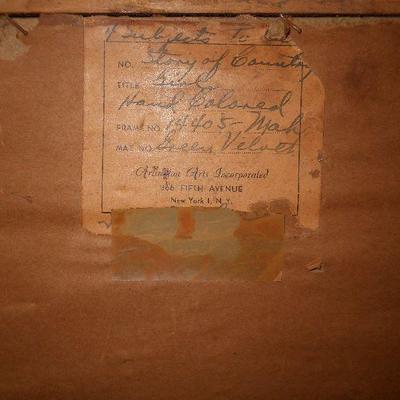 4 Subjects To
NO. Story of Country
TITLE Girl
Hand Colored
FRAME NO. 4405- Mah
MAT NO. Green Velvet
Arlington Arts Incorporated
366 FIFTH AVENUE
New York 1, N. Y.